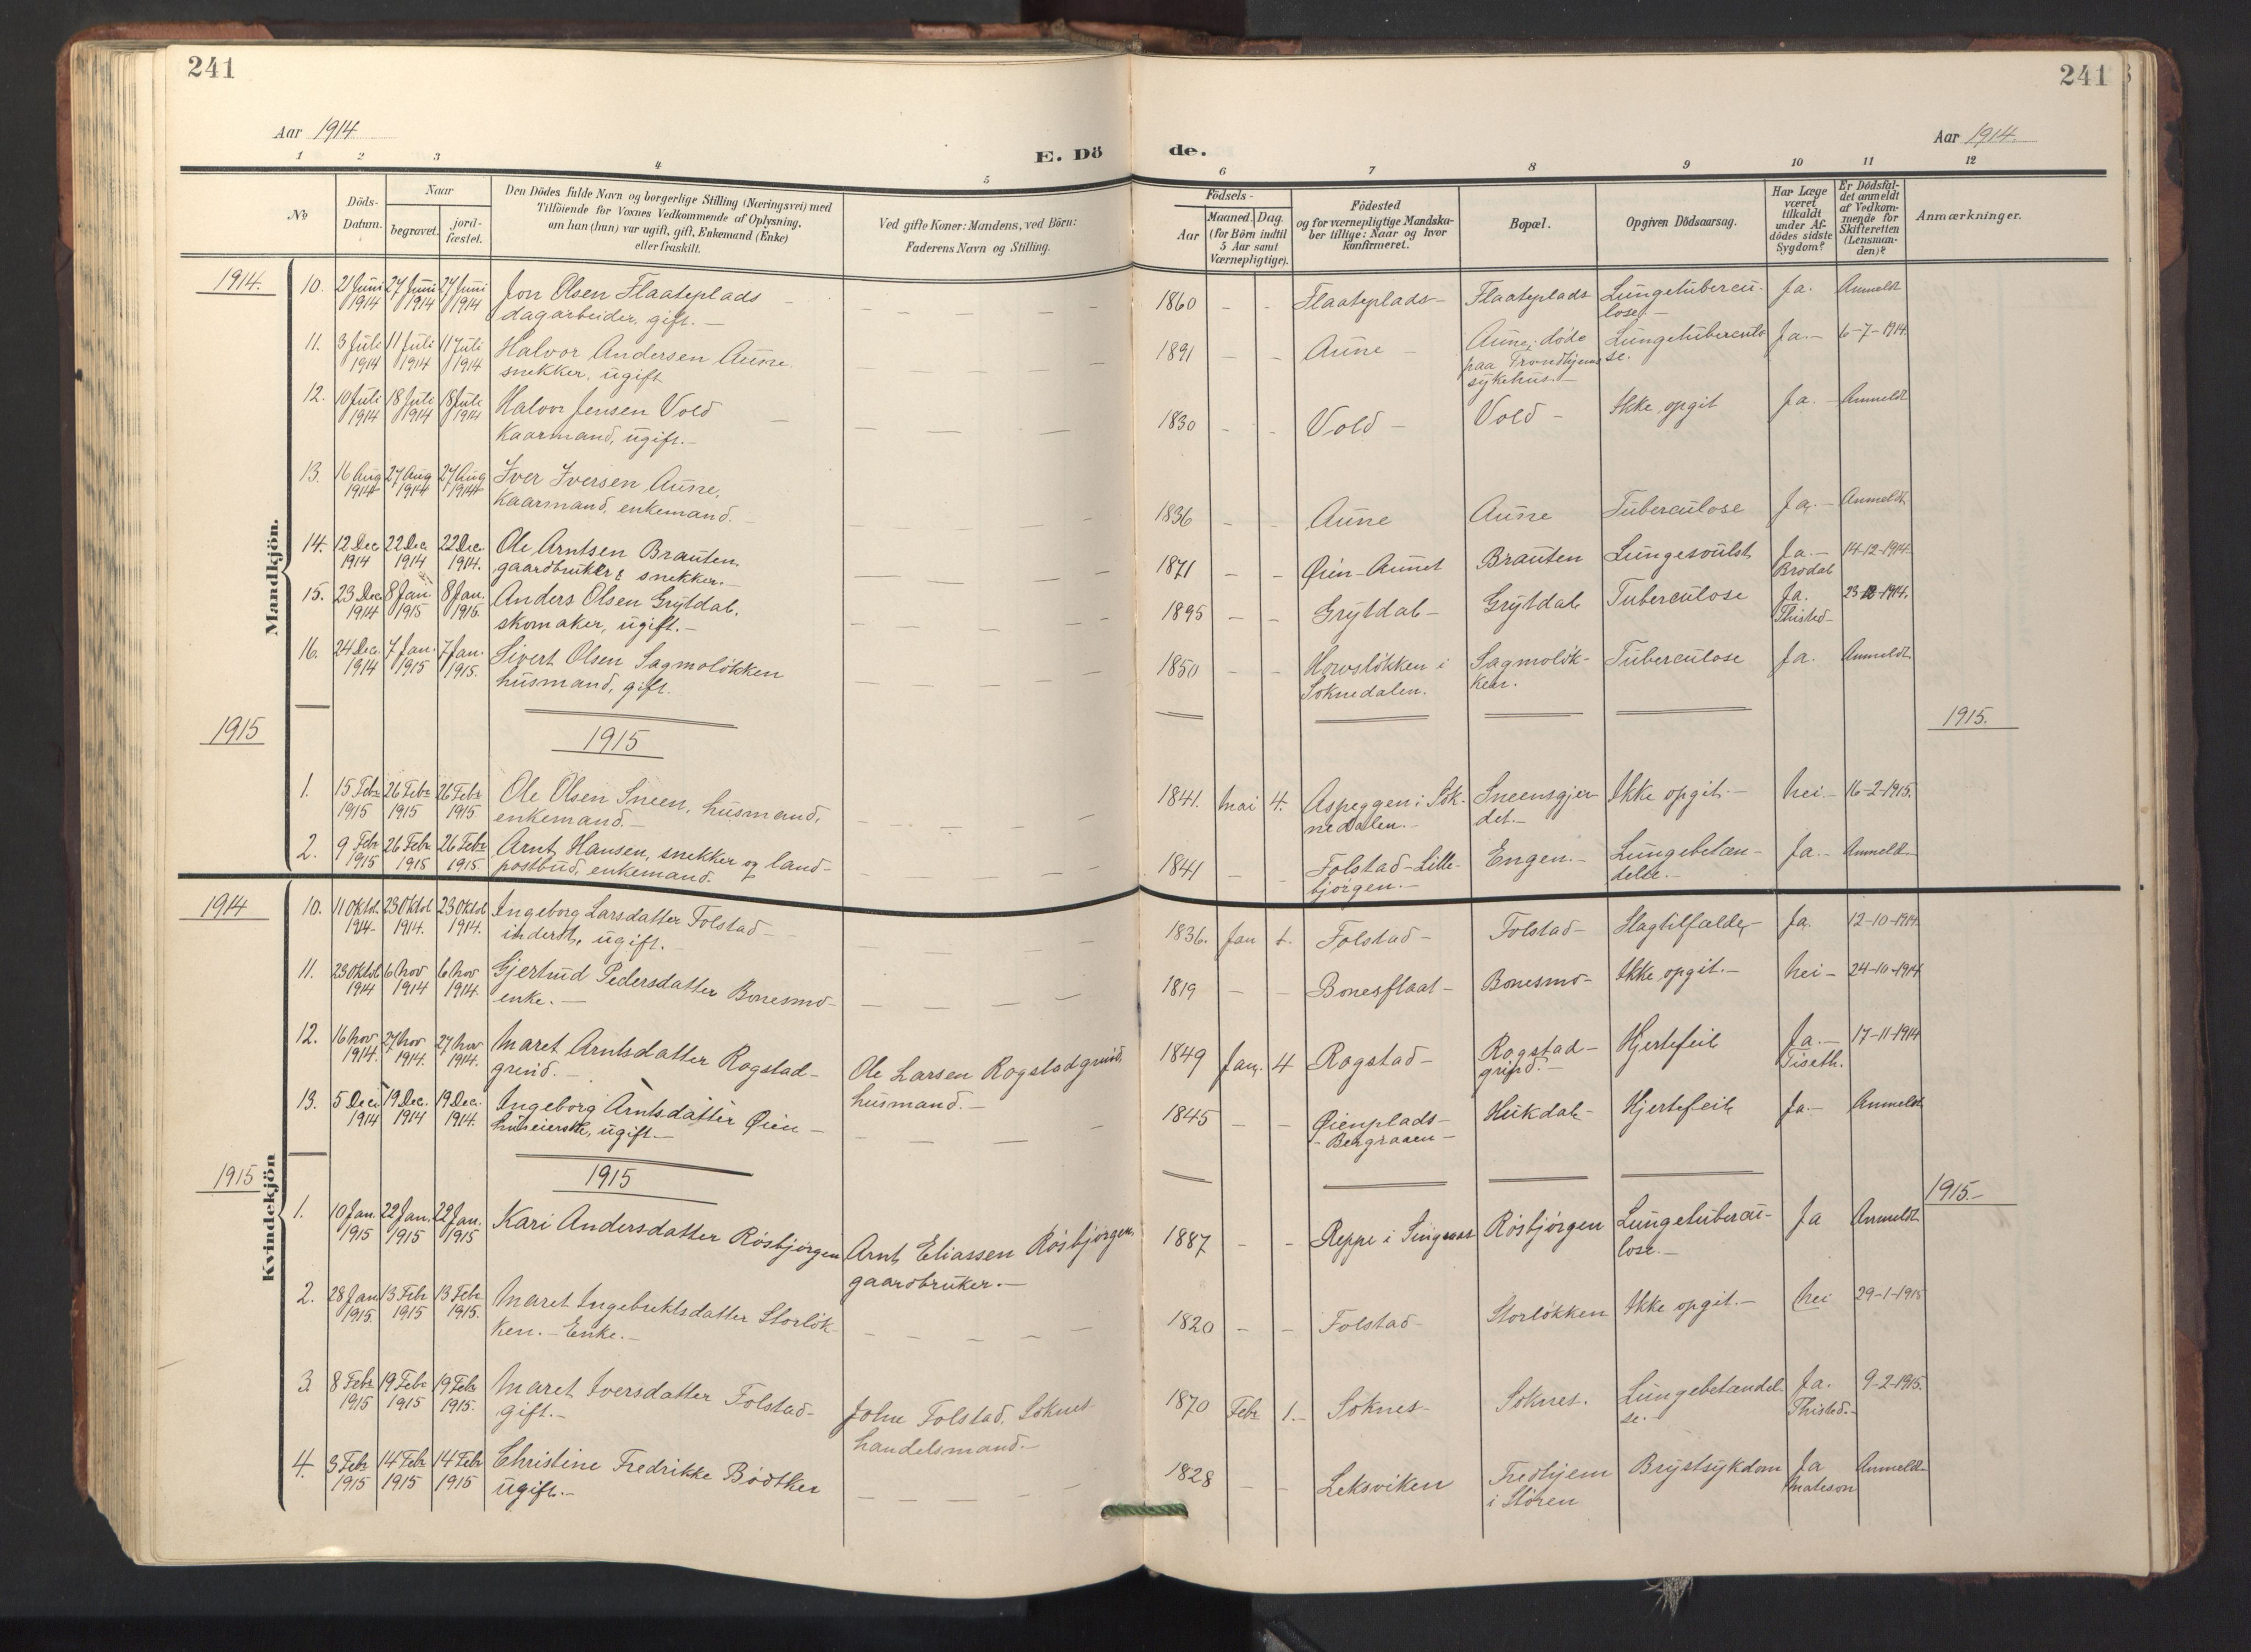 241
241
Aar 1914
E. Dö
de.
Aar 1914.
1 2 3 4 5 6 7 8 9 10 11 12
No
Döds-
Datum.
Naar
begravet.
jord-
fæstet.
Den Dödes fulde Navn og borgerlige Stilling (Næringsvei) med
Tilföiende for Voxnes Vedkommende af Oplysning,
om han (hun) var ugift, gift, Enkemand (Enke)
eller fraskilt.
Ved gifte Koner: Mandens, ved Börn:
Faderens Navn og Stilling.
Födsels-
Aar
Maaned. Dag.
(for Börn indtil
5 Aar samt
Værnepligtige).
Födested
og for værnepligtige Mandska-
ber tillige: Naar og hvor
konfirmeret.
Bopæl.
Opgiven Dödsaarsag.
Har Læge
været
tilkaldt
under Af-
dödes sidste
Sygdom?
Er Dödsfal-
det anmeldt
af Vedkom-
mende for
Skifteretten
(Lensman-
den)?
Anmærkninger.
Mandkjön.
1914.
10. 21 Juni 27 Juni 27 Juni Jon Olsen Flaateplads – 1860 – – Flaateplads – Flaateplads Lungetubercu- Ja. Anmeldt
1914 1914 1914 dagarbeider, gift. – lose. –
11. 3 Juli 11 Juli 11 Juli Halvor Andersen Aune. 1891 – – Aune – Aune, døde Lungetuberculo Ja. – 6-7-1914.
1914 1914 1914 snekker, ugift paa Trondhjems se.
sykehus. –
12. 10 Juli 18 Juli 18 Juli Halvor Jensen Vold – 1830 – – Vold – Vold – Ikke opgit Ja. – Anmeldt
1914 1914 1914 Kaarmand, ugift. –
13. 16 Aug 27 Aug 27 Aug Iver Iversen Aune, 1836 – – Aune Aune Tuberculose Ja. – Anmeldt.
1914 1914 1914 Kaarmand, enkemand. –
14. 12 Dec 22 Dec 22 Dec. Ole Arntsen Brauten, 1871 – – Øien-Aunet Brauten Lungesvulst Ja. – 14-12-1914.
1914 1914 1914. gaardbruker & snekker. – Brodal
15. 23 Dec. 8 Jan. 8 Jan. Anders Olsen Grytdal, 1895 – – Grytdal – Grytdal Tuberculose Ja. 23-12-1914.
1914 1915 1915. skomaker, ugift. – Thisted –
16. 24 Dec. 7 Jan. 7 Jan. Sivert Olsen Sagmoløkken 1850 – – Hovsløkken i Sagmoløk- Tuberculose Ja. Anmeldt
1914 1915 1915. husmand, gift. Soknedalen. ken.
1915
1915
1915.
1. 15 Febr 26 Febr 26 Febr Ole Olsen Sneen, husmand, 1841. Mai 4. Aspeggen i Sok- Sneensgjer- Ikke opgit. – Nei – 16-2-1915.
1915 1915 1915. enkemand. – nedalen. – det. –
2. 9 Feb 26 Febr 26 Febr Arnt Hansen, snekker og land- 1841 – – Folstad-Lille- Engen. – Lungebetæn- Ja. – Anmeldt.
1915 1915 1915. postbud, enkemand. bjørgen. – delse. –
Kvindekjön
1914
10. 11 Oktob. 23 Oktob 23 Oktob Ingeborg Larsdatter Folstad – 1836. Jan 1. Folstad – Folstad – Slagtilfælde, Ja. 12-10-1914.
1914. 1914. 1914. inderst, ugift.
11. 23 Oktob 6 Nov 6 Nov Gjertrud Pedersdatter Bonesmo – 1819 – – Bonesflaat – Bonesmo – Ikke opgit. – Nei – 24-10-1914
1914 1914 1914. enke. –
12. 16 Nov 27 Nov 27 Nov Maret Arntsdatter Rogstad- Ole Larsen Rogstadgrind, 1849 Jan. 4 Rogstad – Rogstad- Hjertefeil Ja. – 17-11-1914
1914. 1914. 1914. grind. – husmand. – grind. – Tiseth.
13. 5 Dec. 19 Dec. 19 Dec. Ingeborg Arntsdatter Øien – 1845 – – Øienplads- Hukdal – Hjertefeil Ja. – Anmeldt
1914 1914 1914. huseierske, ugift. – – Bergraaen –
1915
1915
1915. –
1. 10 Jan. 22 Jan. 22 Jan. Kari Andersdatter Røsbjørgen Arnt Eliassen Røsbjørgen, 1887 – – Reppe i Singsaas Røsbjørgen Lungetubercu- Ja Anmeldt
1915 1915 1915 gaardbruker. – lose. –
2. 28 Jan 13 Feb 13 Feb. Maret Ingebrektsdatter Storløk- 1820 – – Folstad – Storløkken Ikke opgit. – Nei 29-1-1915
1915. 1915 1915. ken. – Enke. –
3. 8 Febr 19 Febr 19 Febr Maret Iversdatter Folstad – John Folstad, Soknes 1870 Febr 1. – Soknes – Soknes. Lungebetændel- Ja. 9-2-1915.
1915 1915 1915. gift. – handelsmand. – se. – Thisted. –
4. 3 Febr 14 Febr 14 Febr Christine Fredrikke Bødtker 1828 – – Leksviken Fredhjem Brystsykdom Ja Anmeldt.
1915 1915 1915 ugift. – i Støren Mateson